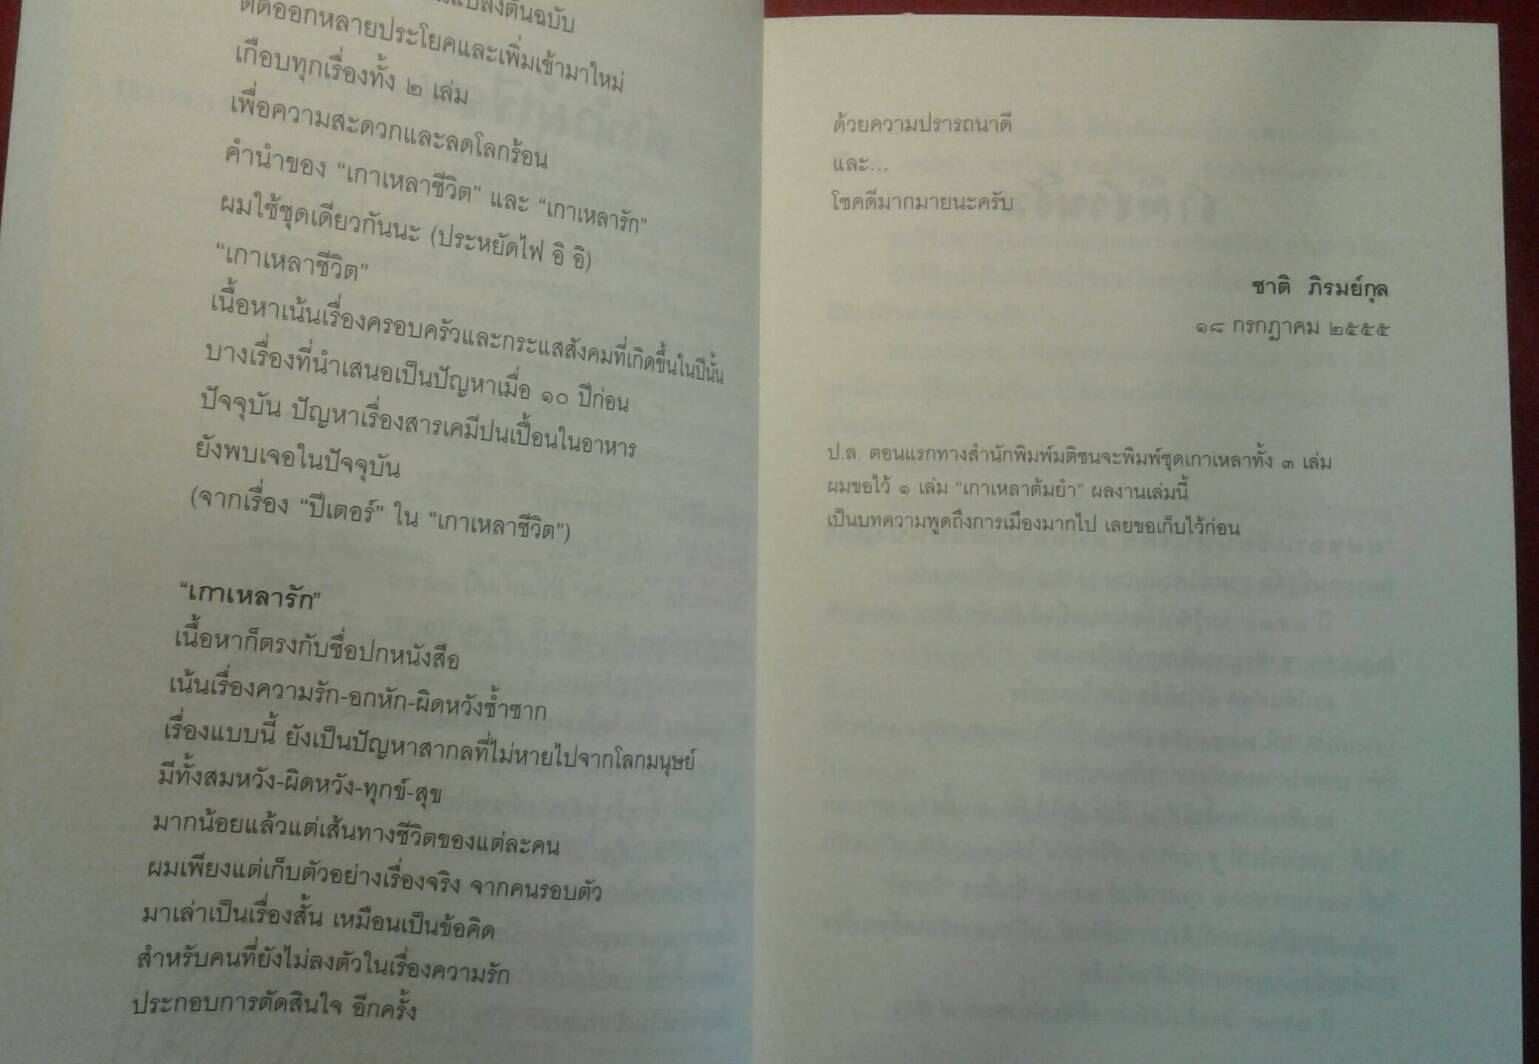 แปลงต้นฉบับ
ตัดออกหลายประโยคและเพิ่มเข้ามาใหม่
เกือบทุกเรื่องทั้ง ๒ เล่ม
เพื่อความสะดวกและลดโลกร้อน
คำนำของ “เกาเหลาชีวิต” และ “เกาเหลารัก”
ผมใช้ชุดเดียวกันนะ (ประหยัดไฟ อิ อิ)
“เกาเหลาชีวิต”
เนื้อหาเน้นเรื่องครอบครัวและกระแสสังคมที่เกิดขึ้นในปีนั้น
บางเรื่องที่นำเสนอเป็นปัญหาเมื่อ ๑๐ ปีก่อน
ปัจจุบัน ปัญหาเรื่องสารเคมีปนเปื้อนในอาหาร
ยังพบเจอในปัจจุบัน
(จากเรื่อง “ปีเตอร์” ใน “เกาเหลาชีวิต”)
“เกาเหลารัก”
เนื้อหาก็ตรงกับชื่อปกหนังสือ
เน้นเรื่องความรัก-อกหัก-ผิดหวังซ้ำซาก
เรื่องแบบนี้ ยังเป็นปัญหาสากลที่ไม่หายไปจากโลกมนุษย์
มีทั้งสมหวัง-ผิดหวัง-ทุกข์-สุข
มากน้อยแล้วแต่เส้นทางชีวิตของแต่ละคน
ผมเพียงแต่เก็บตัวอย่างเรื่องจริง จากคนรอบตัว
มาเล่าเป็นเรื่องสั้น เหมือนเป็นข้อคิด
สำหรับคนที่ยังไม่ลงตัวในเรื่องความรัก
ประกอบการตัดสินใจ อีกครั้ง
ด้วยความปรารถนาดี
และ...
โชคดีมากมายนะครับ
ชาติ ภิรมย์กุล
๑๘ กรกฎาคม ๒๕๕๕
ป.ล. ตอนแรกทางสำนักพิมพ์มติชนจะพิมพ์ชุดเกาเหลาทั้ง ๓ เล่ม
ผมขอไว้ ๑ เล่ม “เกาเหลาต้มยำ” ผลงานเล่มนี้
เป็นบทความพูดถึงการเมืองมากไป เลยขอเก็บไว้ก่อน